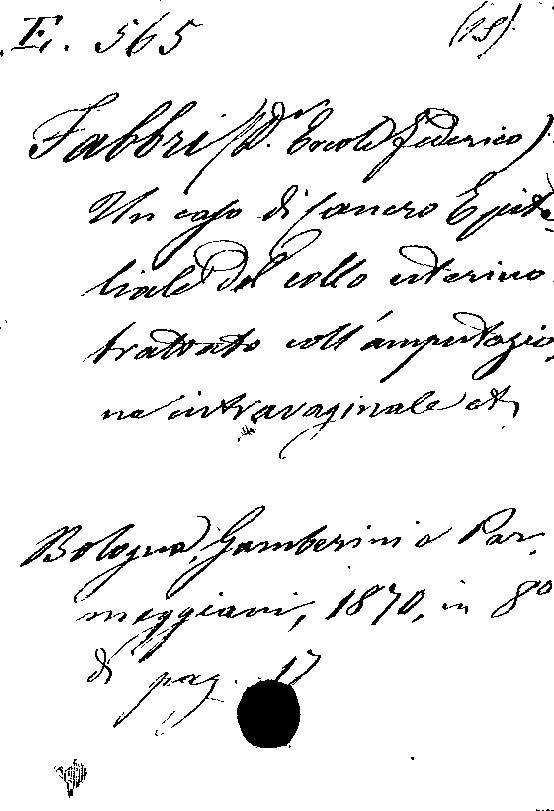 E. 565 (28)
Fabbri (D.r Ercole Federico)
Un caso di Cancro Epite-
liale del collo uterino
trattato coll'amputazio-
ne intravaginale etc.
Bologna, Gamberini e Par-
meggiani, 1870, in 8º
di pag. 17